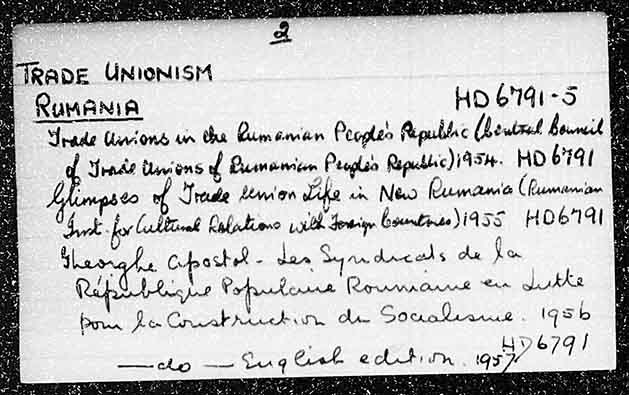 2
TRADE UNIONISM
RUMANIA
HD6791-5
Trade Unions in the Rumanian People's Republic (Central Council
of Trade Unions of Rumanian People's Republic) 1954. HD6791
Glimpses of Trade Union Life in New Rumania (Rumanian
Inst. for Cultural Relations with Foreign Countries) 1955 HD6791
Gheorghe Apostol - Les Syndicats de la
République Populaire Roumaine en Lutte
pour la Construction du Socialisme. 1956
HD6791
—do— English edition. 1957